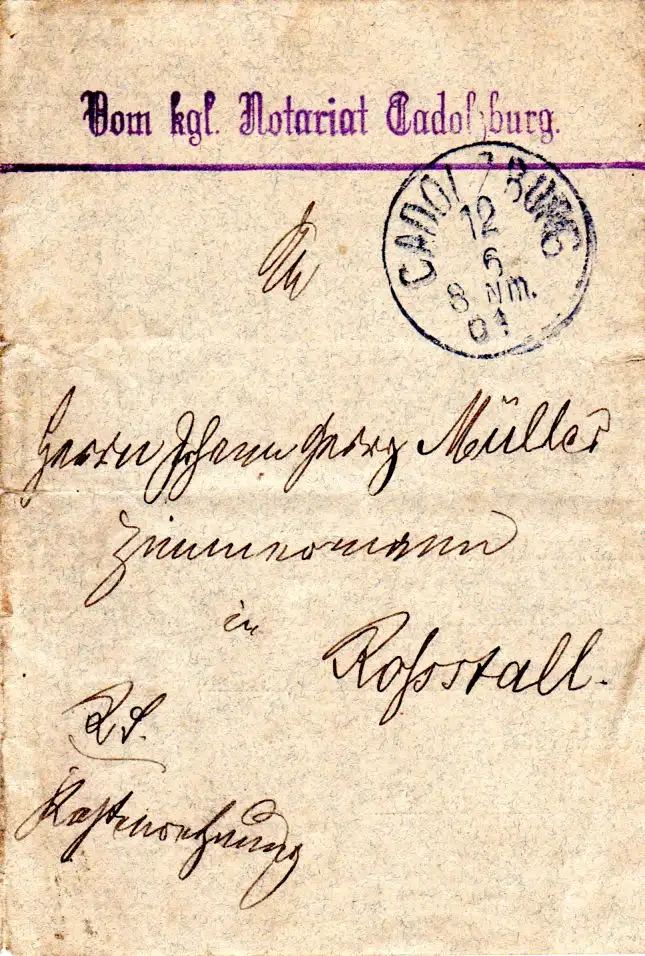 Vom kgl. Notariat Cadolzburg.
CADOLZBURG
12
6
8 Nm.
01
An
Herrn Johann Georg Müller
Zimmermann
in
Roßstall.
R.S.
Kostenrechnung